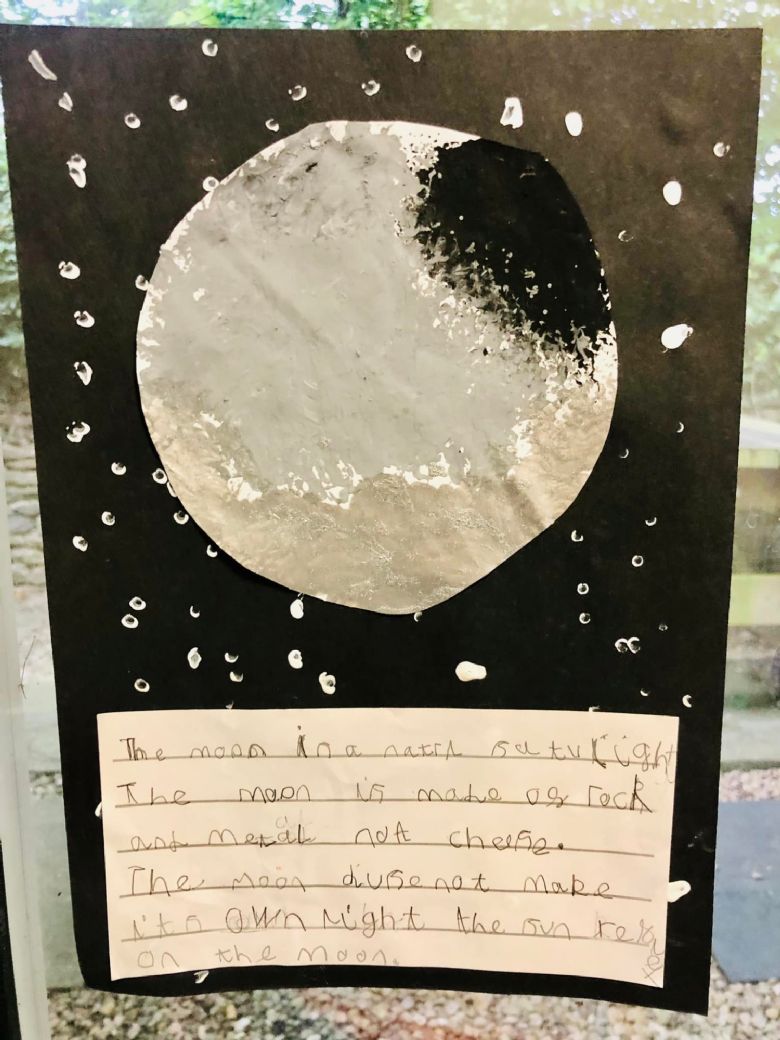 The moon is a natrl satulight
The moon is made os rock
and metal not cheese.
The moon duse not make
its own light the sun
on the moon.